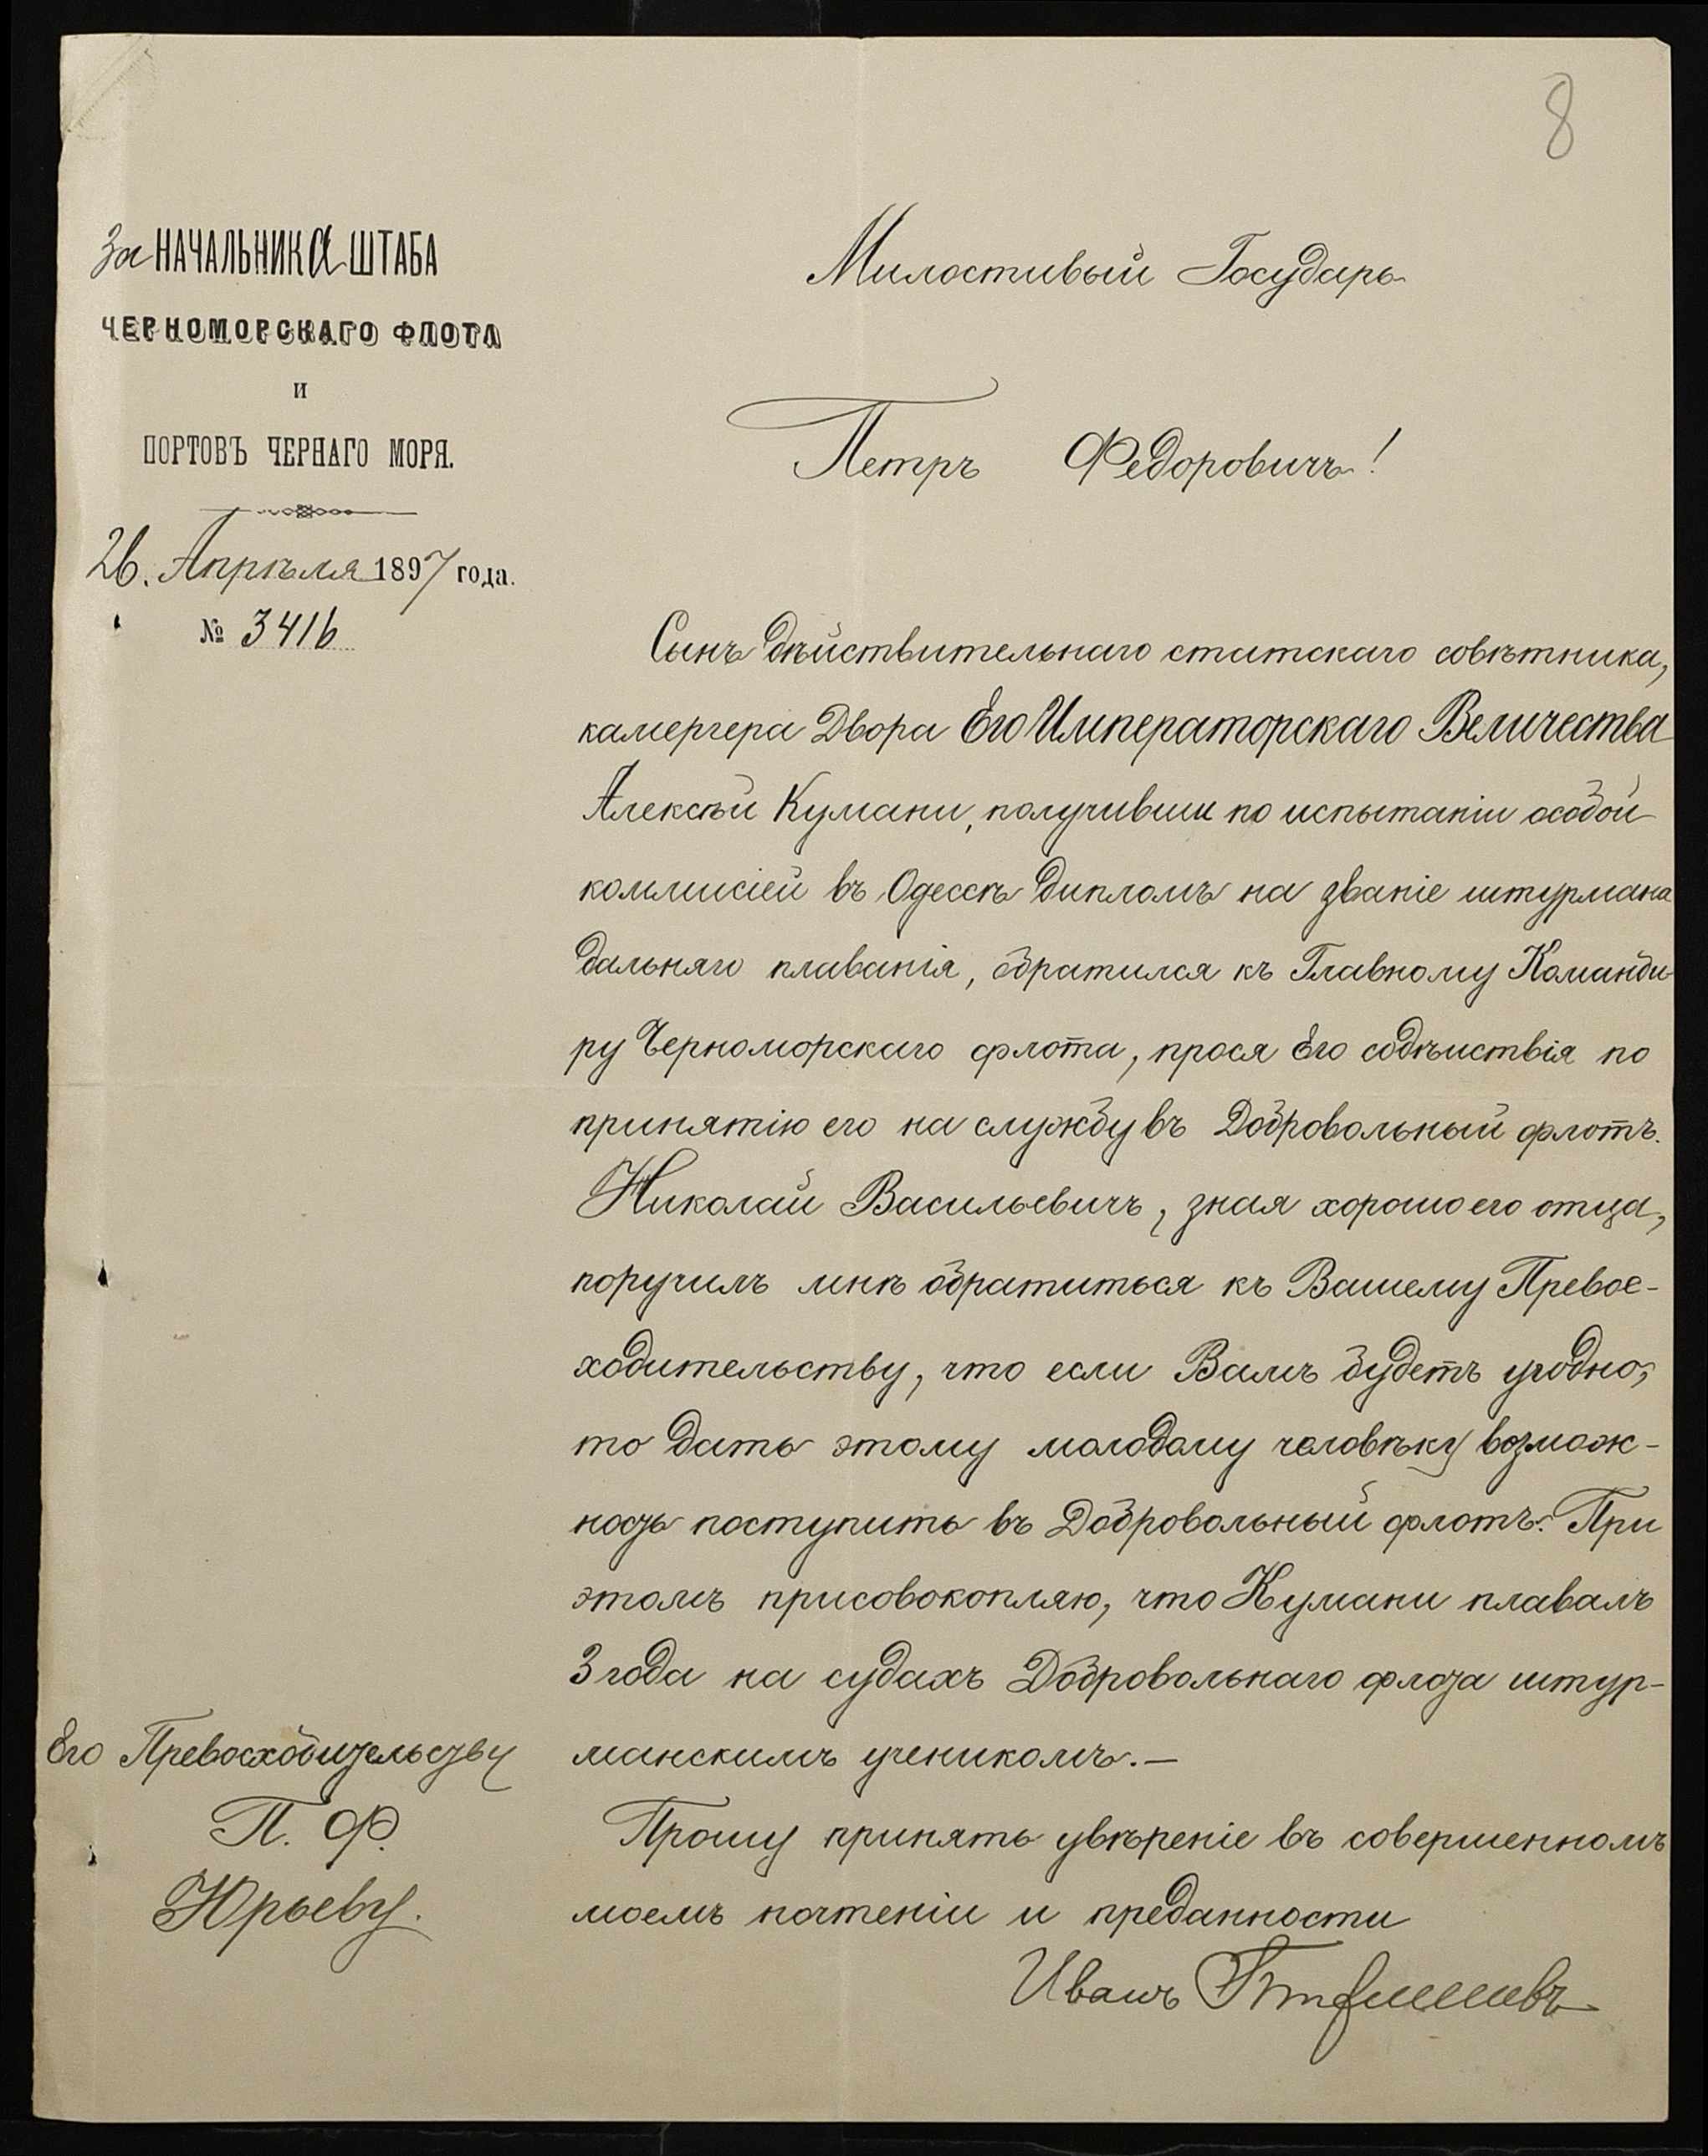 8
За НАЧАЛЬНИКА ШТАБА
ЧЕРНОМОРСКАГО ФЛОТА
И
ПОРТОВЪ ЧЕРНАГО МОРЯ.
26. Апрѣля 1897 года.
№ 3416
Милостивый Государь
Петръ Федоровичъ!
Сынъ дѣйствительнаго статскаго совѣтника,
камергера Двора Его Императорскаго Величества
Алексѣй Кумани, получивши по испытаніи особой
коммисіей въ Одессѣ дипломъ на званіе штурмана
дальняго плаванія, обратился къ Главному Команди-
ру Черноморскаго флота, прося Его содѣйствія по
принятію его на службу въ Добровольный флотъ.
Николай Васильевичъ, зная хорошо его отца,
поручилъ мнѣ обратиться къ Вашему Превос-
ходительству, что если Вамъ будетъ угодно,
то дать этому молодому человѣку возмож-
ность поступить въ Добровольный флотъ. При
этомъ присовокопляю, что Кумани плавалъ
3 года на судахъ Добровольнаго флота штур-
манскимъ ученикомъ.—
Прошу принять увѣреніе въ совершенномъ
моемъ почтеніи и преданности
Иванъ
Его Превосходительству
П. Ф.
Юрьеву.